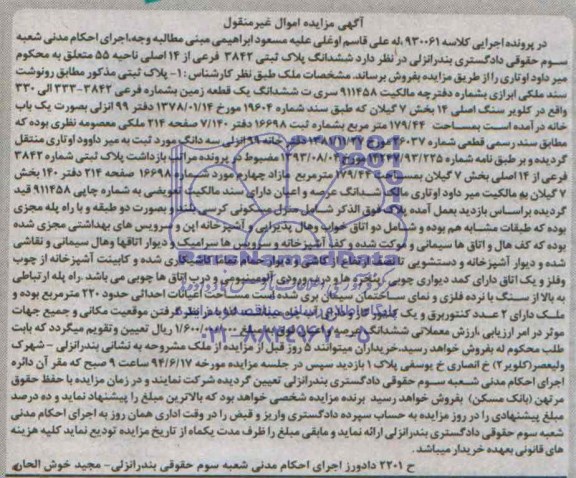 آگهی مزایده اموال غیرمنقول
در پرونده اجرایی کلاسه ۹۳۰۰۶۱ ،له علی قاسم اوغلی علیه مسعود ابراهیمی مبنی مطالبه وجه،اجرای احکام مدنی شعبه
سوم حقوقی دادگستری بندرانزلی در نظر دارد ششدانگ پلاک ثبتی ۳۸۴۲ فرعی از ۱۴ اصلی ناحیه ۵۵ متعلق به محکوم
میر داود اوتاری را از طریق مزایده بفروش برساند. مشخصات ملک طبق نظر کارشناس : ۱- پلاک ثبتی مذکور مطابق رونوشت
سند ملکی ابرازی بشماره دفترچه مالکیت ۹۱۱۴۵۸ سری ت ششدانگ یک قطعه زمین بشماره فرعی ۳۸۴۲-۳۳۳ الی ۳۳۰
واقع در کلویر سنگ اصلی ۱۴ بخش ۷ گیلان که طبق سند شماره ۱۹۶۰۴ مورخ ۱۳۷۸/۰۱/۱۴ دفتر ۹۹ انزلی بصورت یک باب
خانه در آمده است بمساحت ۱۷۹/۴۴ متر مربع بشماره ثبت ۱۶۶۹۸ دفتر ۷/۱۴۰ صفحه ۲۱۴ ملکی معصومه نظری بوده که
مطابق سند رسمی قطعی شماره دفتر خانه ۹۹ انزلی سه دانگ مورد ثبت به میر داوود اوتاری منتقل
گردیده و بر طبق نامه شماره مضبوط در پرونده مراتب بازداشت پلاک ثبتی شماره ۳۸۴۲
فرعی از ۱۴ اصلی بخش ۷ گیلان بمساحت ۱۷۹/۴۴ مترمربع مازاد چهارم مورد شماره ۱۶۶۹۸ صفحه ۲۱۴ دفتر ۱۴۰ بخش
۷ گیلان به مالکیت میر داود اوتاری مالک ششدانگ عرصه و اعیان دارای سند مالکیت تعویضی به شماره چاپی ۹۱۱۴۵۸ قید
گردیده براساس بازدید بعمل آمده پلاک فوق الذکر شامل منزل مسکونی کرسی بلند و بصورت دو طبقه و با راه پله مجزی
بوده که طبقات مشابه هم بوده و شامل دو اتاق خواب وهال پذیرایی و آشپزخانه اپن و سرویس های بهداشتی مجزی شده
بوده که کف هال و اتاق ها سیمانی و موکت شده و کف آشپزخانه و سرویس ها سرامیک و دیوار اتاقها وهال سیمانی و نقاشی
شده و دیوار آشپزخانه و دستشویی تا سقف کاشی و دیوار حمام تماما کاشی کاری شده و کابینت آشپزخانه از چوب
وفلز و یک اتاق دارای کمد دیواری چوبی درب ورودی آلومینیومی و درب اتاق ها چوبی می باشد .راه پله ارتباطی
به بالا از سنگ با نرده فلزی و نمای ساختمان سیمان بری شده است مساحت اعیانات احداثی حدود ۲۲۰ مترمربع بوده و
ملک دارای ۲ عدد کنتوربرق و یک لذا با در نظر گرفتن موقعیت مکانی و جمیع جهات
موثر در امر ارزیابی ،ارزش معاملاتی ششدانگ عرصه و اعیان فوق به مبلغ ۱/۶۰۰/۰۰۰/۰۰۰ ریال تعیین و تقویم میگردد که بابت
طلب محکوم له بفروش خواهد رسید.خریداران میتوانند ۵ روز قبل از مزایده از ملک مشروحه به نشانی بندرانزلی - شهرک
ولیعصر(کلویر۲) خ انصاری خ یوسفی پلاک ۱ بازدید سپس در جلسه مزایده مورخه ۹۴/۶/۱۷ ساعت ۹ صبح که مقر آن دائره
اجرای احکام مدنی شعبه سوم حقوقی دادگستری بندرانزلی تعیین گردیده شرکت نمایند و در زمان مزایده با حفظ حقوق
مرتهن (بانک مسکن) بفروش خواهد رسید برنده مزایده شخصی خواهد بود که بالاترین مبلغ را پیشنهاد نماید و ده درصد
مبلغ پیشنهادی را در روز مزایده به حساب سپرده دادگستری واریز و قبض را در وقت اداری همان روز به اجرای احکام مدنی
شعبه سوم حقوقی دادگستری بندرانزلی ارائه نماید و مابقی مبلغ را ظرف مدت یکماه از تاریخ مزایده تودیع نماید کلیه هزینه
های قانونی بعهده خریدار میباشد.
ح ۲۲۰۱ دادورز اجرای احکام مدنی شعبه سوم حقوقی بندرانزلی- مجید خوش الحان